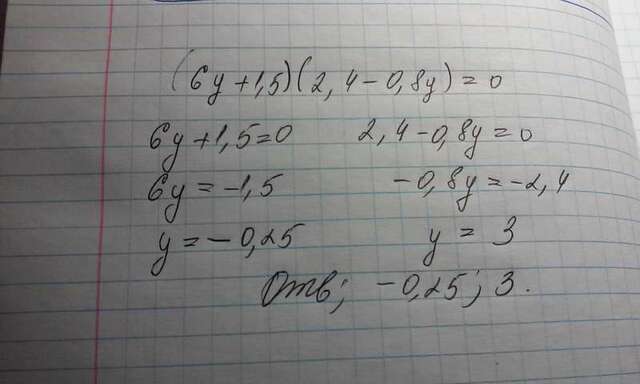 (6y+1,5)(2,4-0,8y)=0
6y+1,5=0 2,4-0,8y=0
6y=-1,5 -0,8y=-2,4
y=-0,25 y=3
Отв; -0,25; 3.